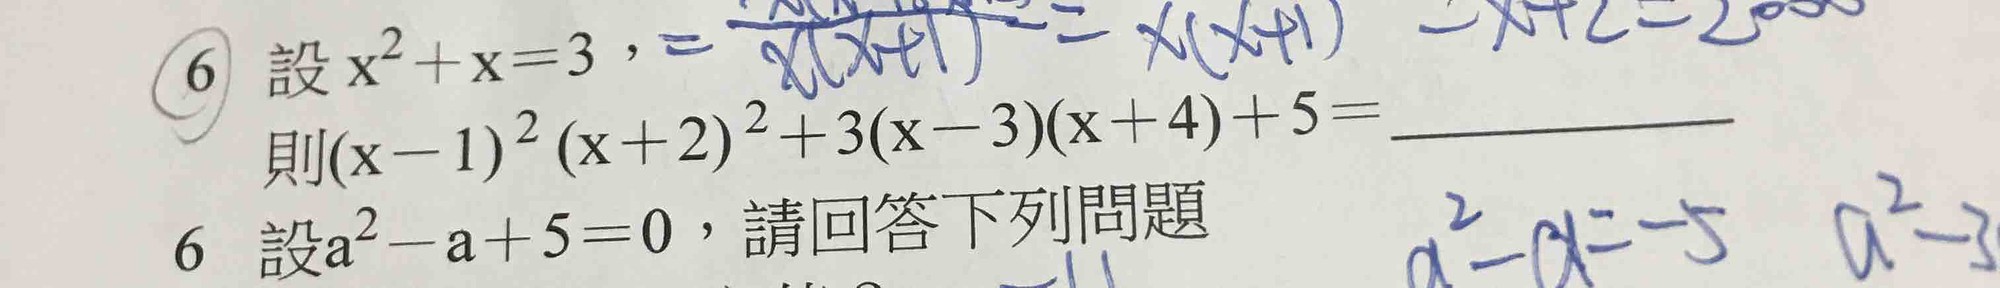 6 設 x²+x=3，= x(x+1) = x(x+1) -x+2=2000
則(x-1)²(x+2)²+3(x-3)(x+4)+5=
6 設a²-a+5=0，請回答下列問題
a²-a=-5 a²-3
-11